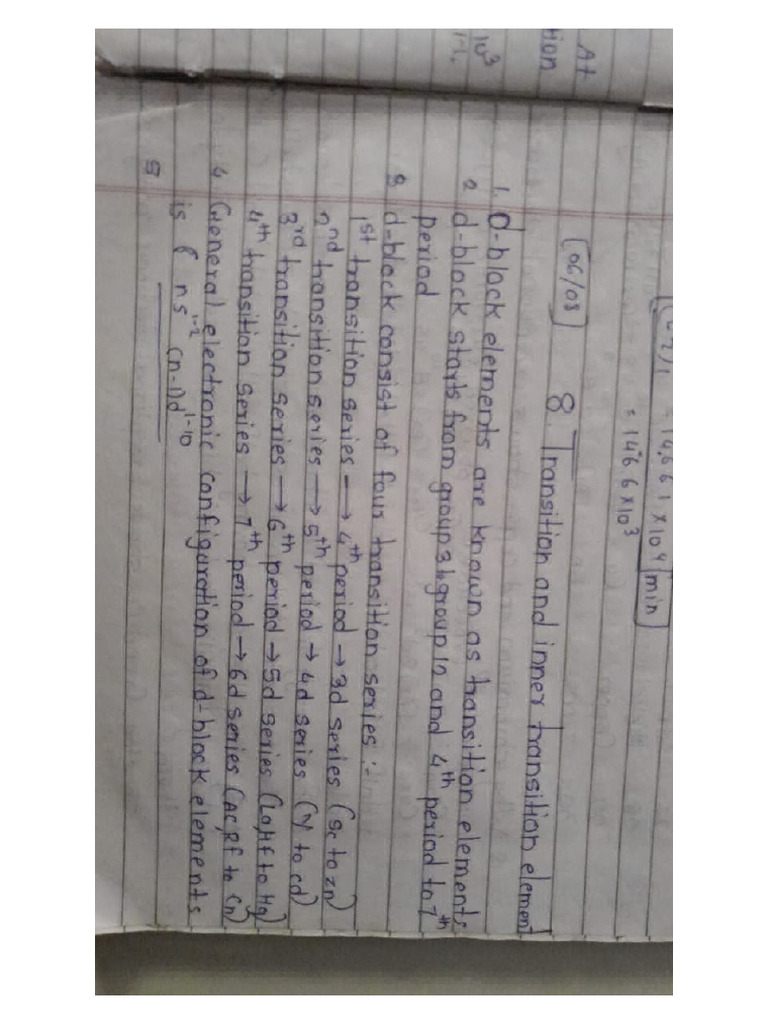 At
tion
10³
= 14.661 × 10⁴ min
= 14.66 × 10³
06/08
8. Transition and inner transition element
1. d-block elements are known as transition elements
2 d-block starts from group 3 to group 12 and 4th period to 7th
period
3 d-block consist of four transition series :-
1st transition series → 4th period → 3d series (Sc to Zn)
2nd transition series → 5th period → 4d series (Y to Cd)
3rd transition series → 6th period → 5d series (La, Hf to Hg)
4th transition series → 7th period → 6d series (Ac, Rf to Cn)
4 General electronic configuration of d-block elements
is ns¹⁻² (n-1)d¹⁻¹⁰
5